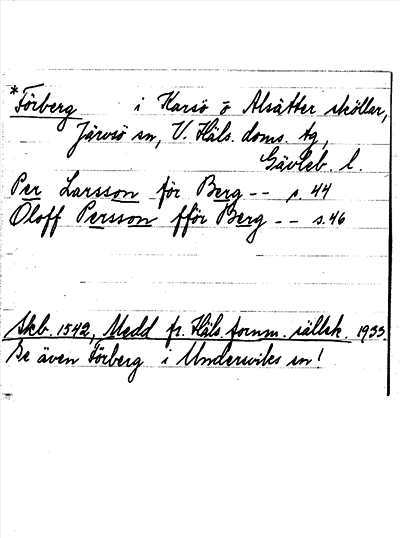 *Förberg i Karsö o Alsätter sköllar,
Järvsö sn, V. Häls. doms. tg,
Gävleb. l.
Per Larsson för Berg -- s. 44
Oloff Persson fför Berg -- s. 46
Skb. 1542, Medd fr. Häls. fornm. sällsk. 1933.
Se även Förberg i Underviks sn!